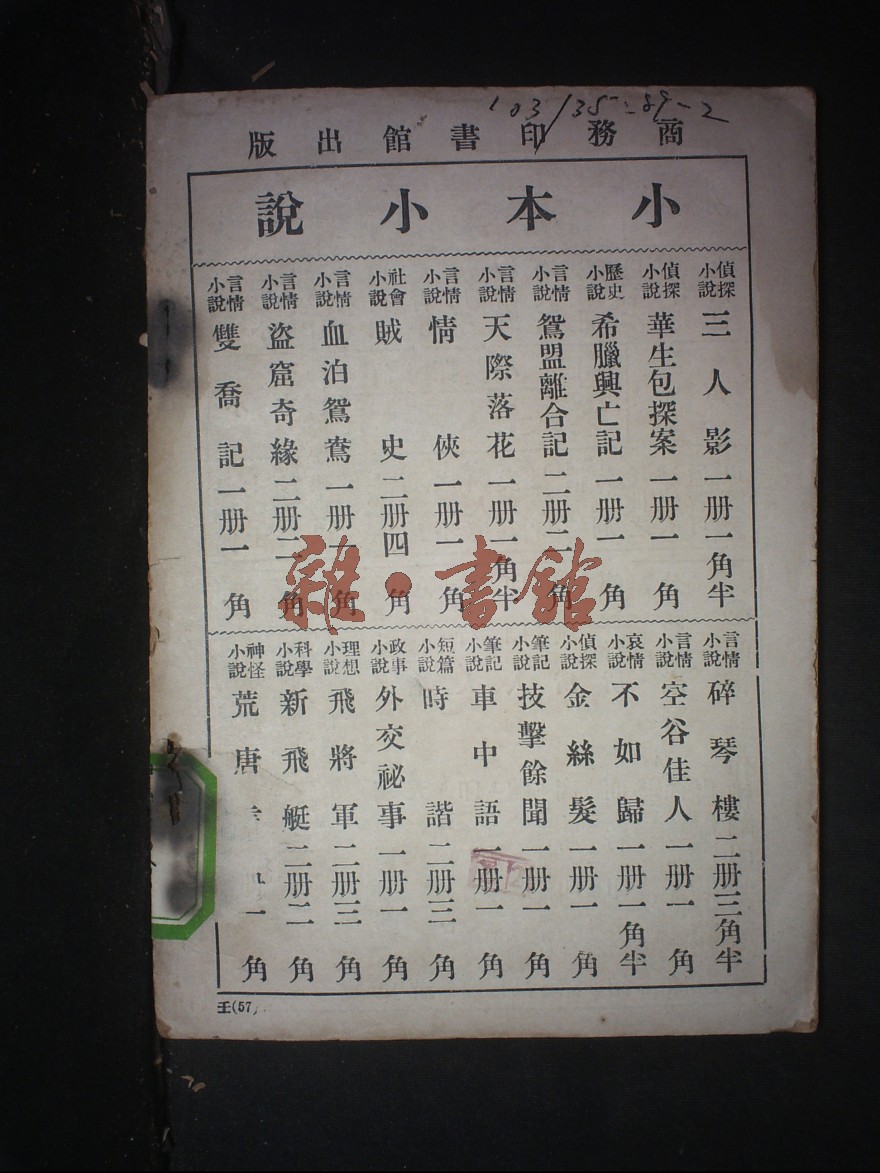 103/35-89-2
商務印書館出版
小本小說
偵探小說 三人影 一册一角半
偵探小說 華生包探案 一册一角
歷史小說 希臘興亡記 一册一角
言情小說 鴛盟離合記 二册二角
言情小說 天際落花 一册一角半
言情小說 情俠 一册一角
社會小說 賊史 二册四角
言情小說 血泊鴛鴦 一册一角
言情小說 盜窟奇緣 二册二角
言情小說 雙喬記 一册一角
言情小說 碎琴樓 二册三角半
言情小說 空谷佳人 一册一角
哀情小說 不如歸 一册一角半
偵探小說 金絲髮 一册一角
筆記小說 技擊餘聞 一册一角
筆記小說 車中語 一册一角
短篇小說 時諧 二册三角
政事小說 外交祕事 一册一角
理想小說 飛將軍 二册三角
科學小說 新飛艇 二册二角
神怪小說 荒唐 一角
王(57)
雜·書館